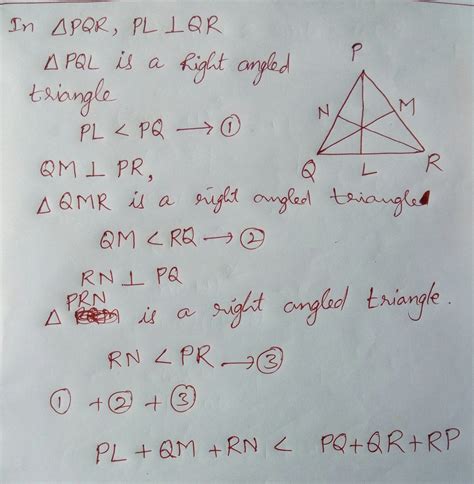 In △PQR, PL ⊥ QR
△PQL is a Right angled
triangle
PL < PQ → ①
QM ⊥ PR,
△QMR is a right angled triangle
QM < RQ → ②
RN ⊥ PQ
△ PRN is a right angled triangle.
RN < PR → ③
① + ② + ③
PL + QM + RN < PQ + QR + RP
P
N
M
Q
L
R